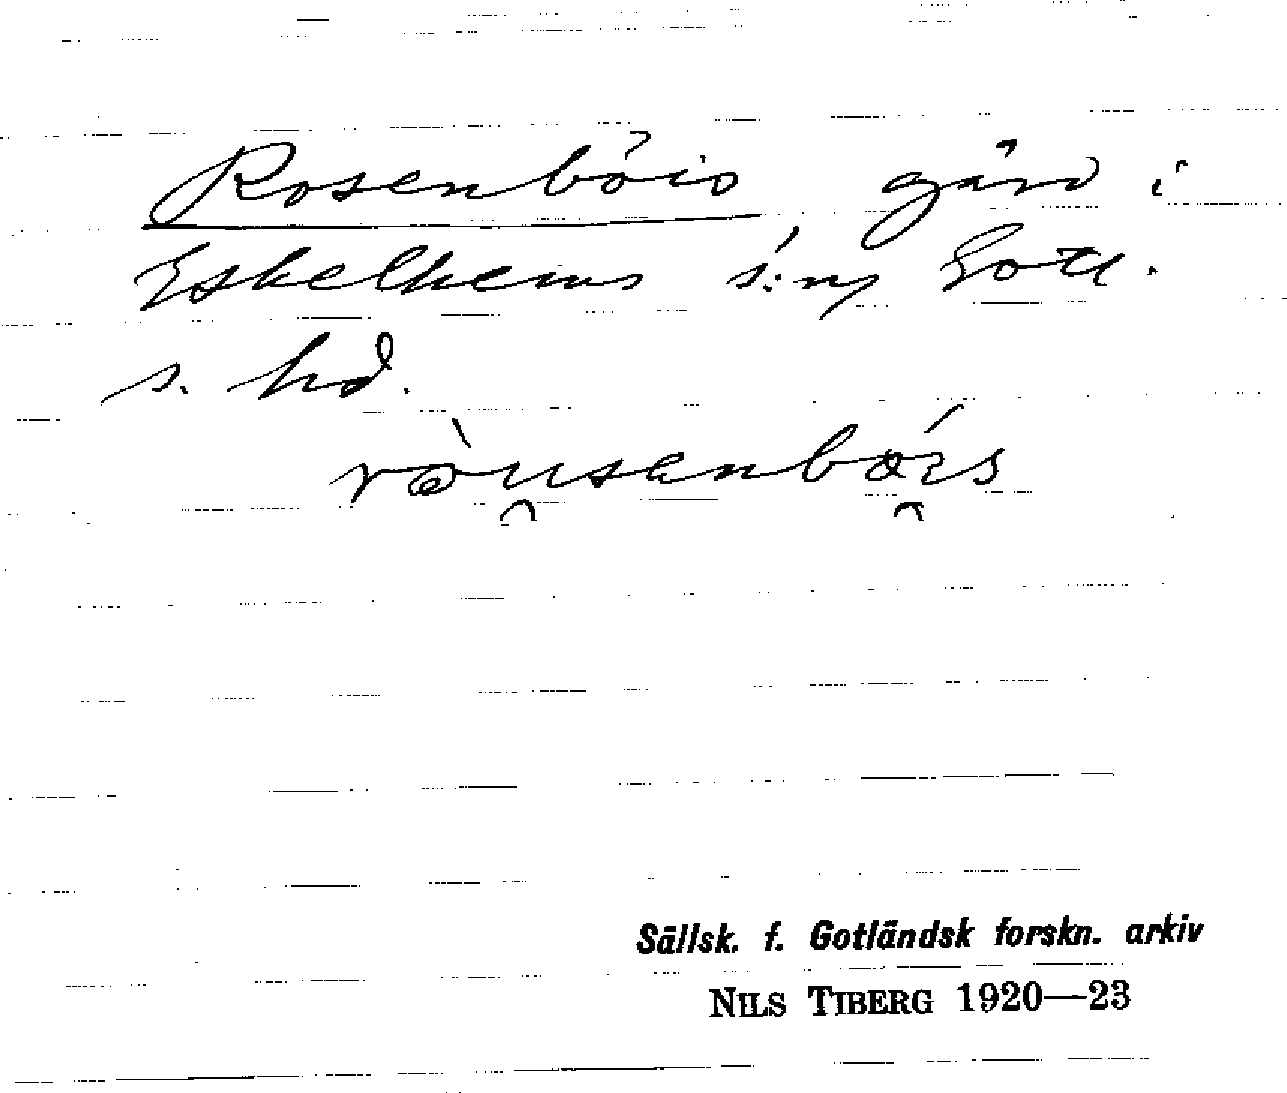 Rosenböis gård i
Eskelhems s:n, Gotl.
s. hd.
Sällsk. f. Gotländsk forskn. arkiv
NILS TIBERG 1920—23